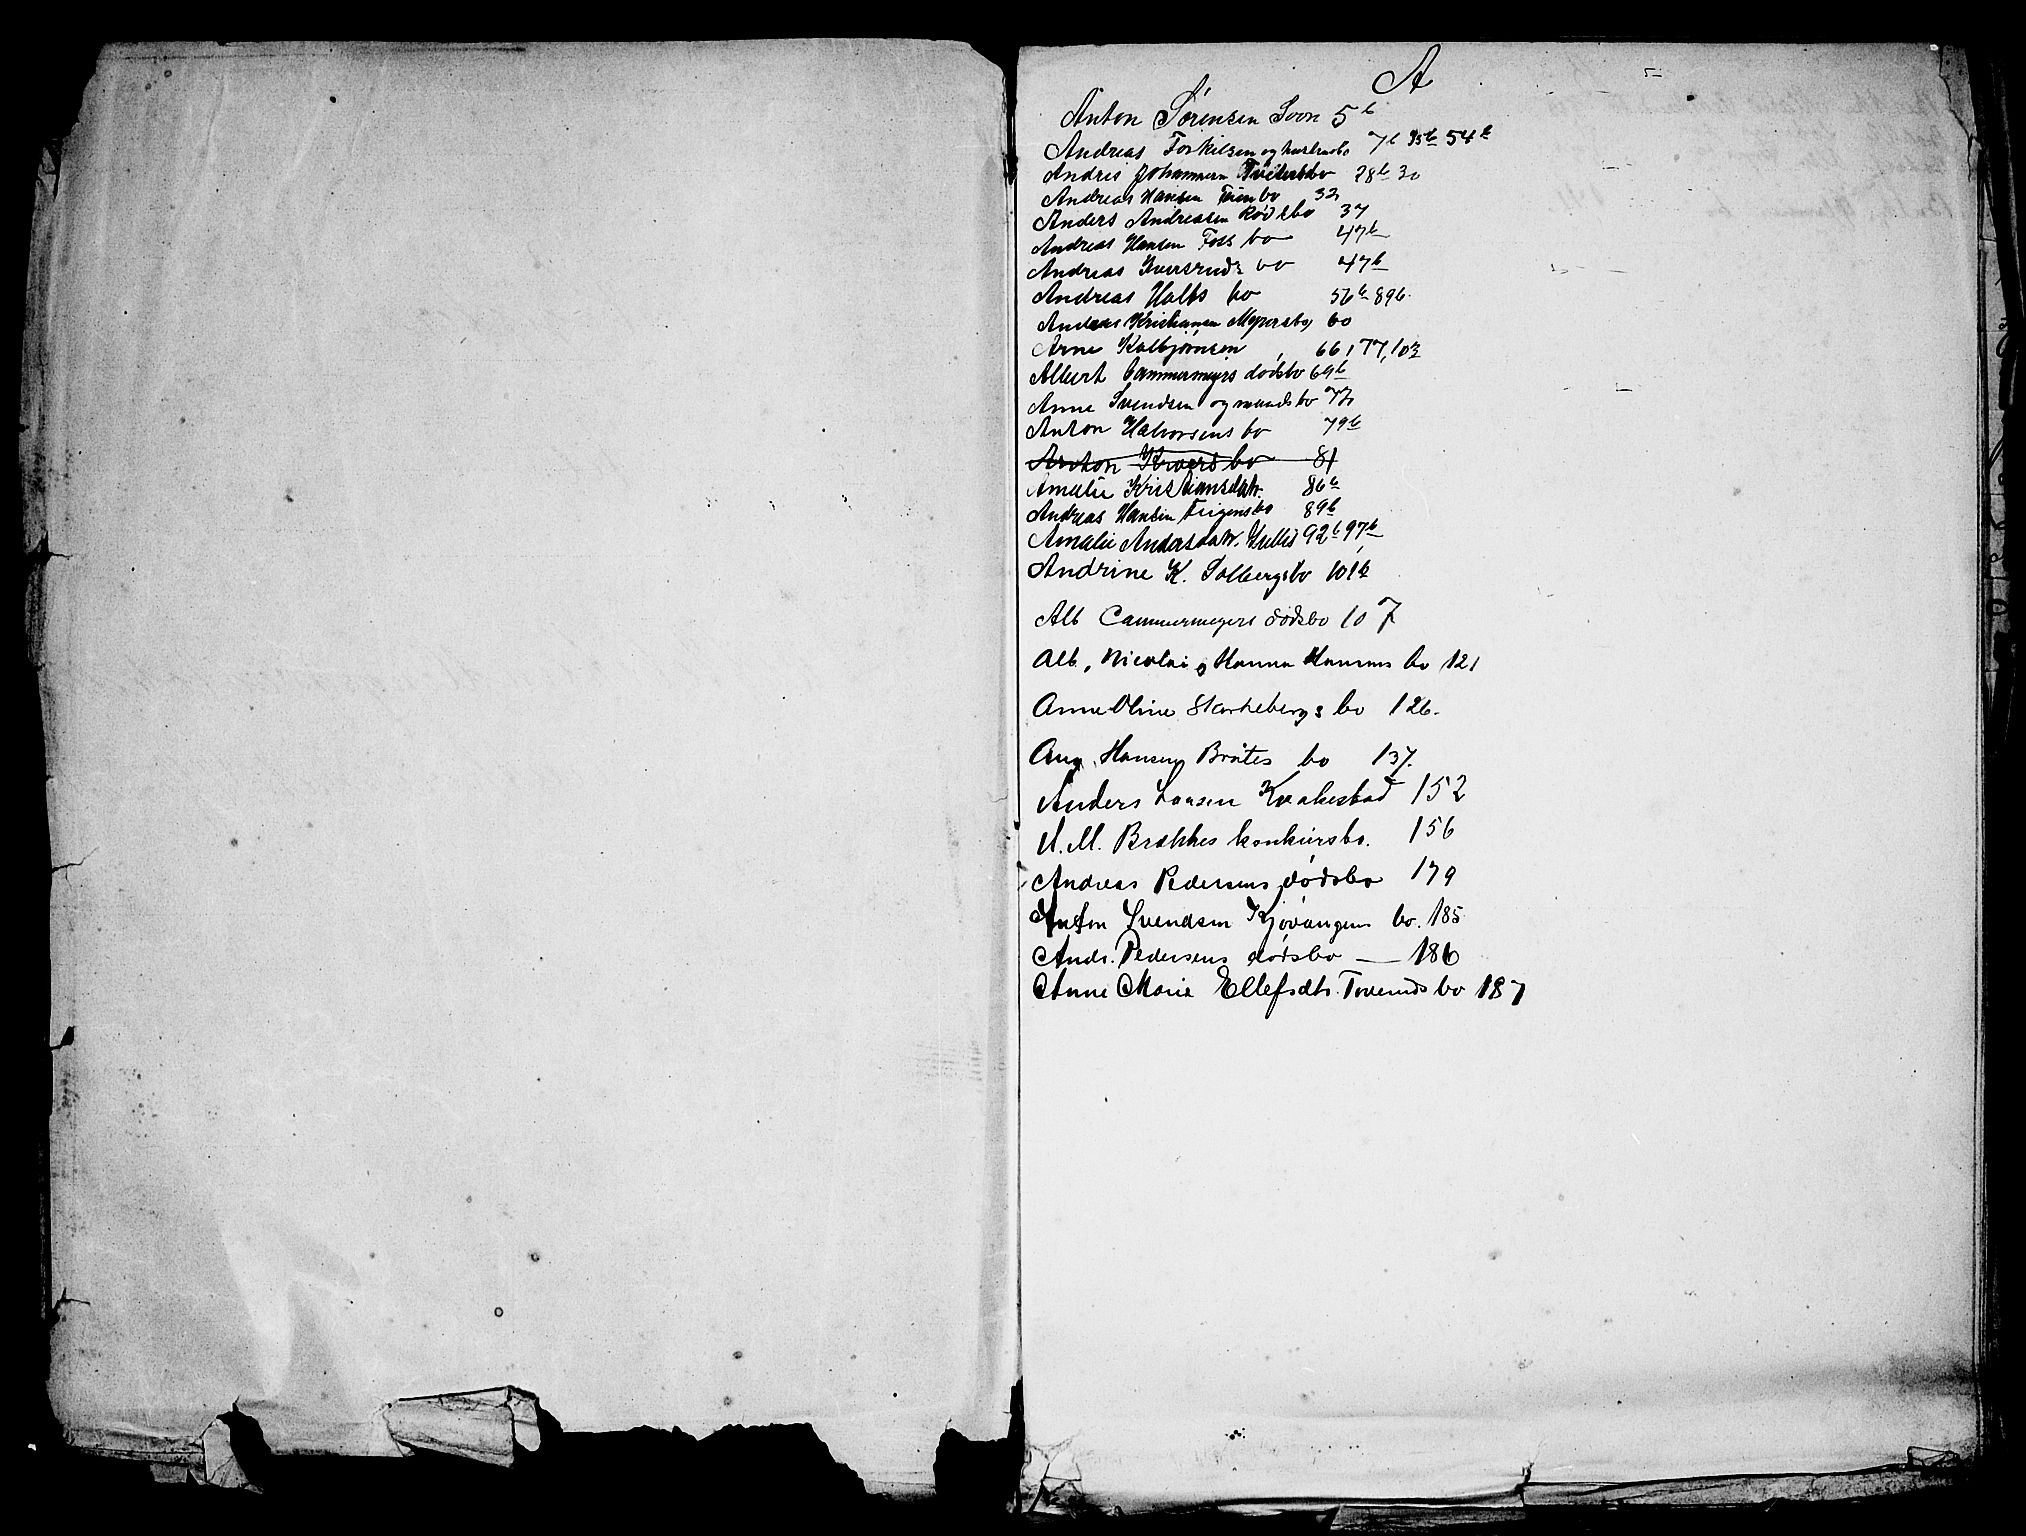 A
Anton Sørensen Soon 5b
Andreas Torkilsen og hustrusbo 7b 35b 54b
Andreas Johannesen bo 28b 30
Andreas Hansen bo 32
Anders Andreasen Rødsbo 37
Andreas Hansen Foss bo 47b
Andreas Iversruds bo 47b
Andreas Holts bo 56b 89b.
Andreas Kristiansen Myrersbo 60
Arne Kolbjørnsen 66, 77, 103
Albert Cammermeyers dødsbo 69b
Anne Svendsen og mands bo 73
Anton Halvorsens bo 79b
Anton Krogers bo 81
Amalie Kristiansdatr. 86b
Andreas Hansen bo 89b
Amalie Andersdatr. 92b 97b
Andrine K. Solbergsbo 101b
Alb Cammermeyers dødsbo 107
Alb, Nicolai og Hanna Hansens bo 121
Anne Oline Starkebergs bo 126.
Aug. Hansen Bråtes bo 137.
Anders Larsen Krakestad 152
A. M. Brækkes konkursbo. 156
Andreas Pedersens dødsbo 179
Anton Svendsen Kjøvangens bo. 185
Andr. Pedersens dødsbo — 186
Anne Marie Ellefsdtr. Toveruds bo 187